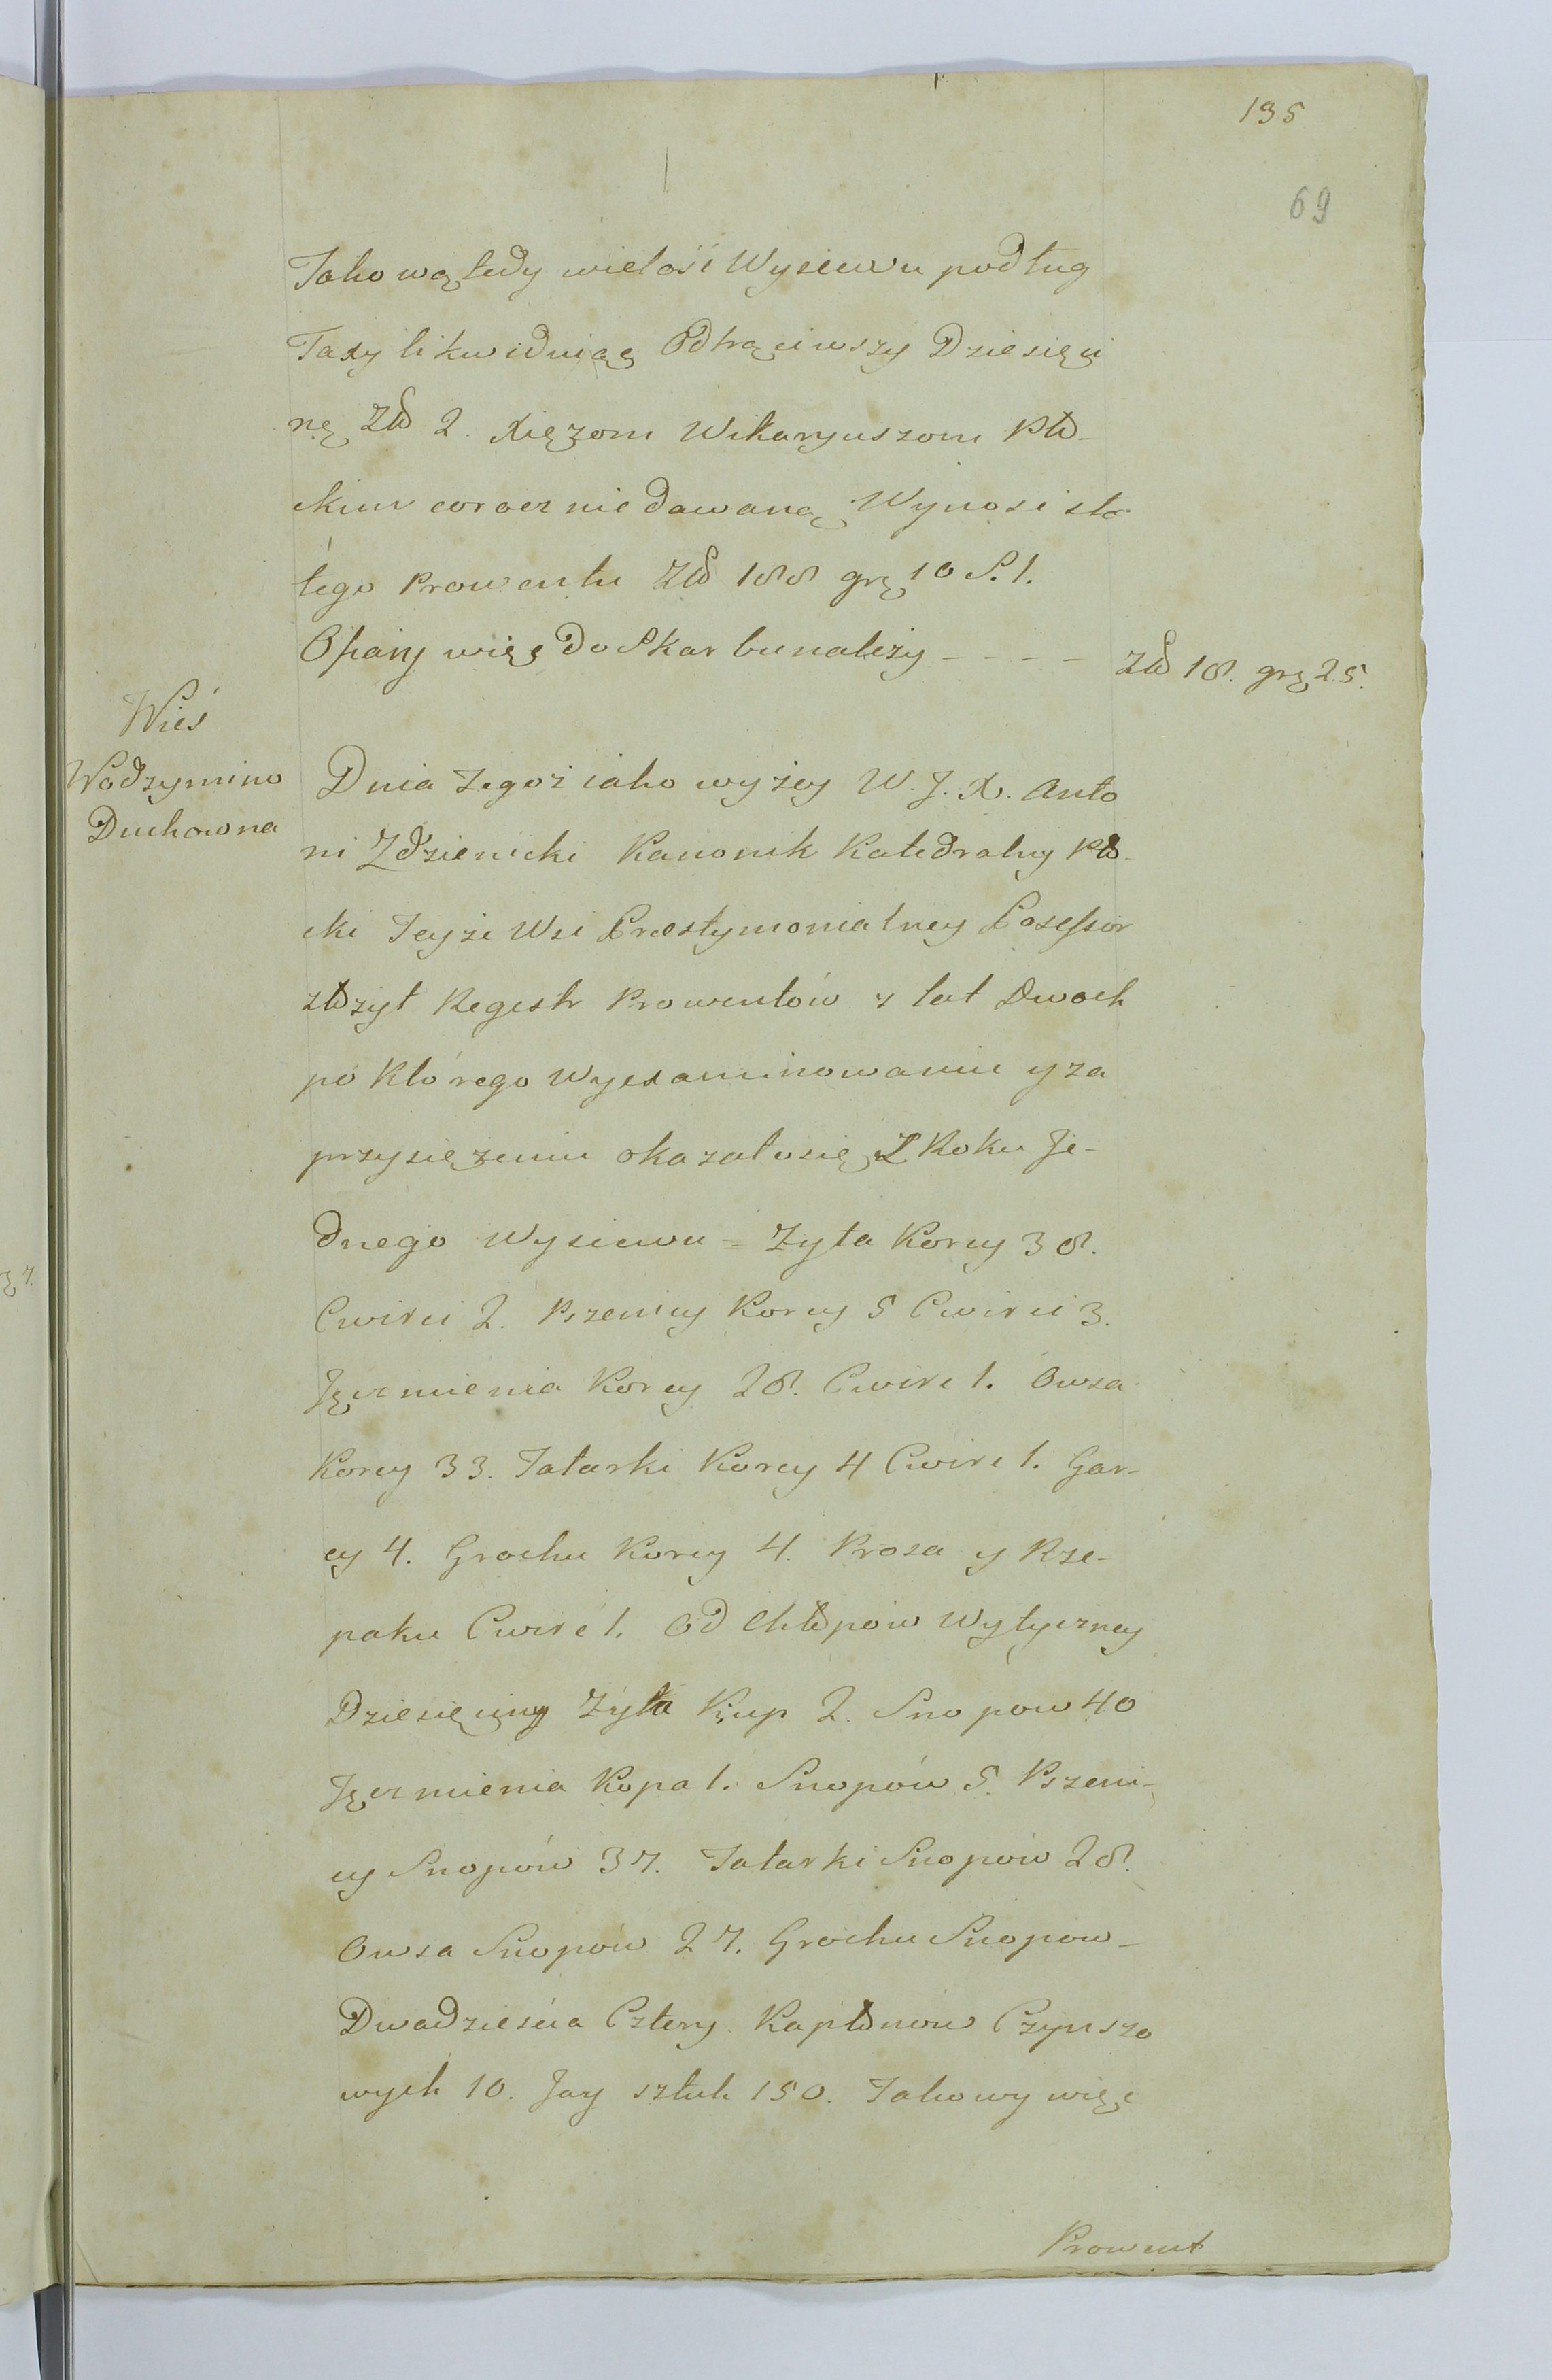 135
69
Takową tedy wielość Wysiewu podług
Taxy likwiduiąc Odtrąciwszy Dziesięci
nę Zło 2. Xiężom Wikaryuszom Pło-
ckim corocznie dawaną Wynosi sta
łego Prowentu Zło 188 grz 10 S. 1.
Ofiary więc do Skarbu należy - - - - Zło 18. grz 25.
Wieś
Wodzymino
Duchowna
Dnia Tegoż iako wyżey W. J. X. Anto
ni Zdzienicki Kanonik Katedralny Pło-
cki Teyże Wsi Præstymonialney Possessor
złożył Regestr Prowentów z lat Dwoch
po którego Wyexaminowaniu y za
przysiężeniu okazało się Z Roku Je-
dnego Wysiewu = Zyta Korcy 38.
Cwierci 2. Pszenicy Korcy 5 Cwierci 3.
Jęczmienia Korcy 28. Cwierc 1. Owsa
Korcy 33. Tatarki Korcy 4 Cwierc 1. Gar-
cy 4. Grochu Korcy 4. Prosa y Rze-
paku Cwierć 1. Od Chłopów Wytyczney
Dziesięciny Zyta Kup 2. Snopow 40
Jęczmienia Kopa 1. Snopów 5. Pszeni-
cy Snopów 37. Tatarki Snopów 28.
Owsa Snopów 27. Grochu Snopow -
Dwadzieścia Cztery Kapłonów Czynszo
wych 10. Jay sztuk 150. Takowy więc
Prowent